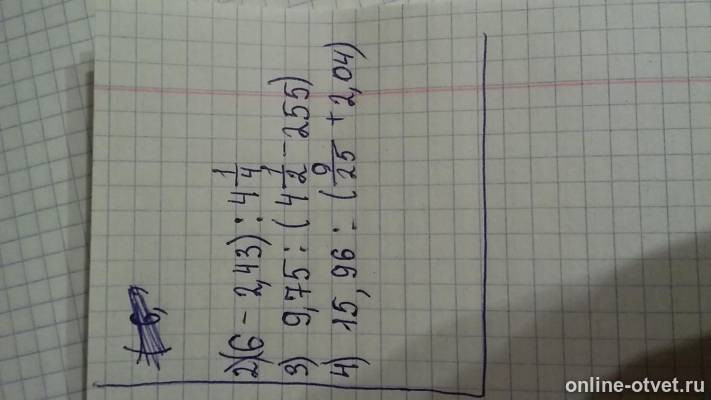 2)(6 - 2,43) : 4 1/4
3) 9,75 : (4 1/2 - 255)
4) 15,96 : (9/25 + 2,04)
online-otvet.ru